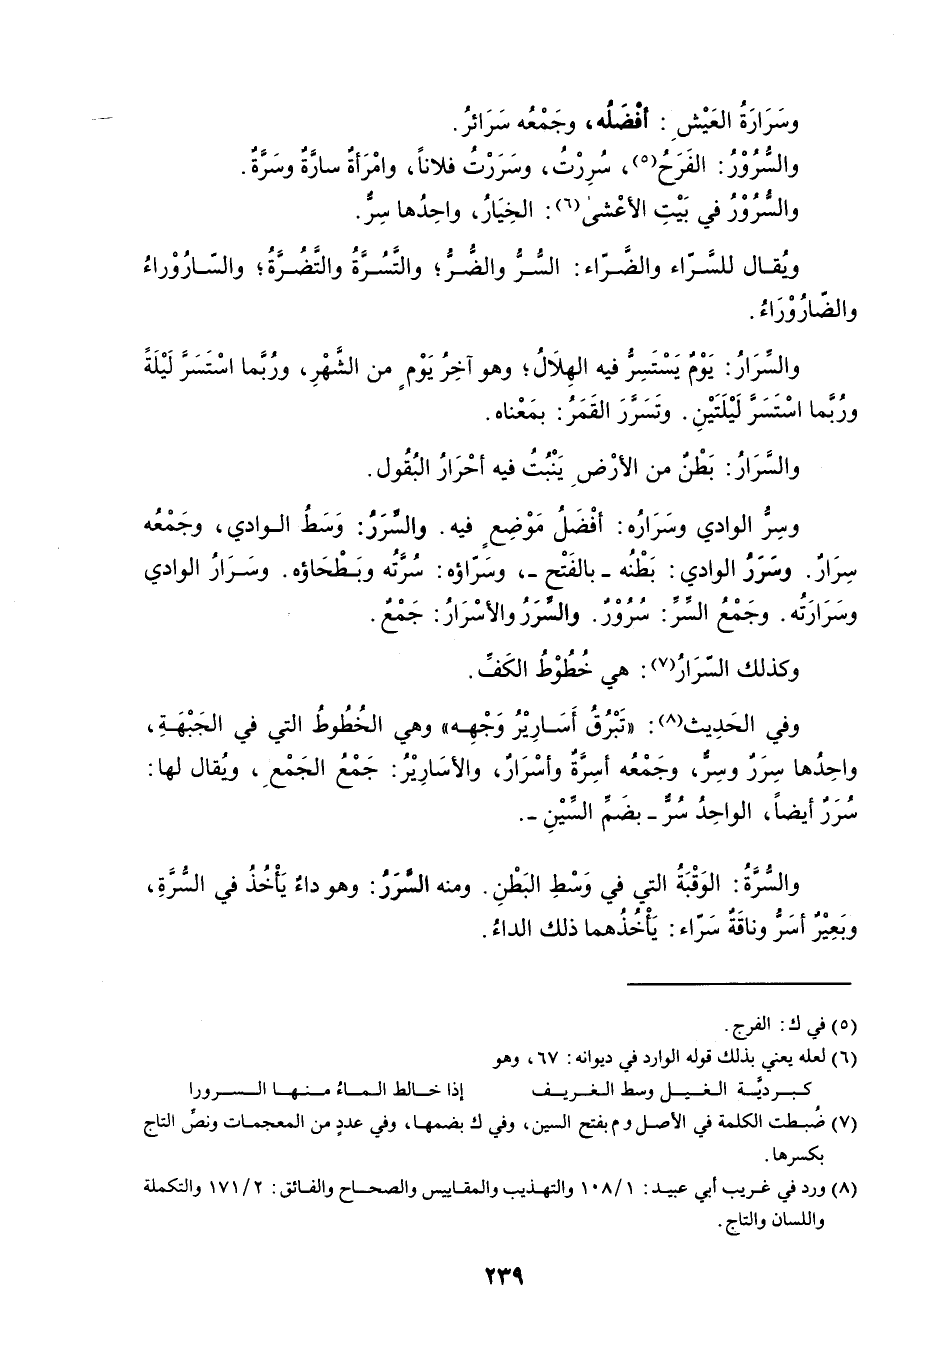 وسَرَارَةُ العَيْشِ: أفْضَلُه، وجَمْعُه سَرَائرُ.
والسُّرُوْرُ: الفَرَحُ(٥)، سُرِرْتُ، وسَرَرْتُ فلاناً، وامْرَأةٌ سارَّةٌ وسَرَّةٌ.
والسُّرُوْرُ في بَيْتِ الأعْشىٰ(٦): الخِيَارُ، واحِدُها سِرٌّ.
ويُقال للسَّرّاء والضَّرّاء: السُّرُّ والضُّرُّ؛ والتَّسُرَّةُ والتَّضُرَّةُ؛ والسّارُوْراءُ
والضّارُوْرَاءُ.
والسِّرَارُ: يَوْمٌ يَسْتَسِرُّ فيه الهِلَالُ؛ وهو آخِرُ يَوْمٍ من الشَّهْرِ، ورُبَّما اسْتَسَرَّ لَيْلَةً
ورُبَّما اسْتَسَرَّ لَيْلَتَيْنِ. وتَسَرَّرَ القَمَرُ: بمَعْناه.
والسَّرَارُ: بَطْنٌ من الأرْضِ يَنْبُتُ فيه أحْرَارُ البُقُول.
وسِرُّ الوادي وسَرَارُه: أفْضَلُ مَوْضِعٍ فيه. والسَّرَرُ: وَسَطُ الوادي، وجَمْعُه
سِرَارٌ. وسَرَرُ الوادي: بَطْنُه - بالفَتْح -، وسَرّاؤه: سُرَّتُه وبَطْحَاؤه. وسَرَارُ الوادي
وسَرَارَتُه. وجَمْعُ السِّرِّ: سُرُوْرٌ. والسِّرَرُ والأسْرَارُ: جَمْعٌ.
وكذلك السّرَارُ(٧): هي خُطُوْطُ الكَفِّ.
وفي الحَدِيث(٨): «تَبْرُقُ أسَارِيْرُ وَجْهِه» وهي الخُطُوطُ التي في الجَبْهَةِ،
واحِدُها سِرَرٌ وسِرٌّ، وجَمْعُه أسِرَّةٌ وأسْرَارٌ، والأسَارِيْرُ: جَمْعُ الجَمْعِ، ويُقال لها:
سُرَرٌ أيضاً، الواحِدُ سُرٌّ - بضَمِّ السِّيْنِ -.
والسُّرَّةُ: الوَقْبَةُ التي في وَسْطِ البَطْنِ. ومنه السَّرَرُ: وهو داءٌ يَأْخُذُ في السُّرَّةِ،
وبَعِيْرٌ أسَرُّ وناقَةٌ سَرّاء: يَأْخُذُهما ذلك الداءُ.
(٥) في ك: الفرج.
(٦) لعله يعني بذلك قوله الوارد في ديوانه: ٦٧، وهو
كبرديَّة الغيل وسط الغريف إذا خالط الماءُ منها السرورا
(٧) ضُبطت الكلمة في الأصل و م بفتح السين، وفي ك بضمها، وفي عددٍ من المعجمات ونصِّ التاج
بكسرها.
(٨) ورد في غريب أبي عبيد: ١٠٨/١ والتهذيب والمقاييس والصحاح والفائق: ١٧١/٢ والتكملة
واللسان والتاج.
٢٣٩